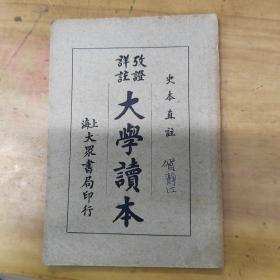 史本直註
攷證
詳註
大學讀本
上海大眾書局印行